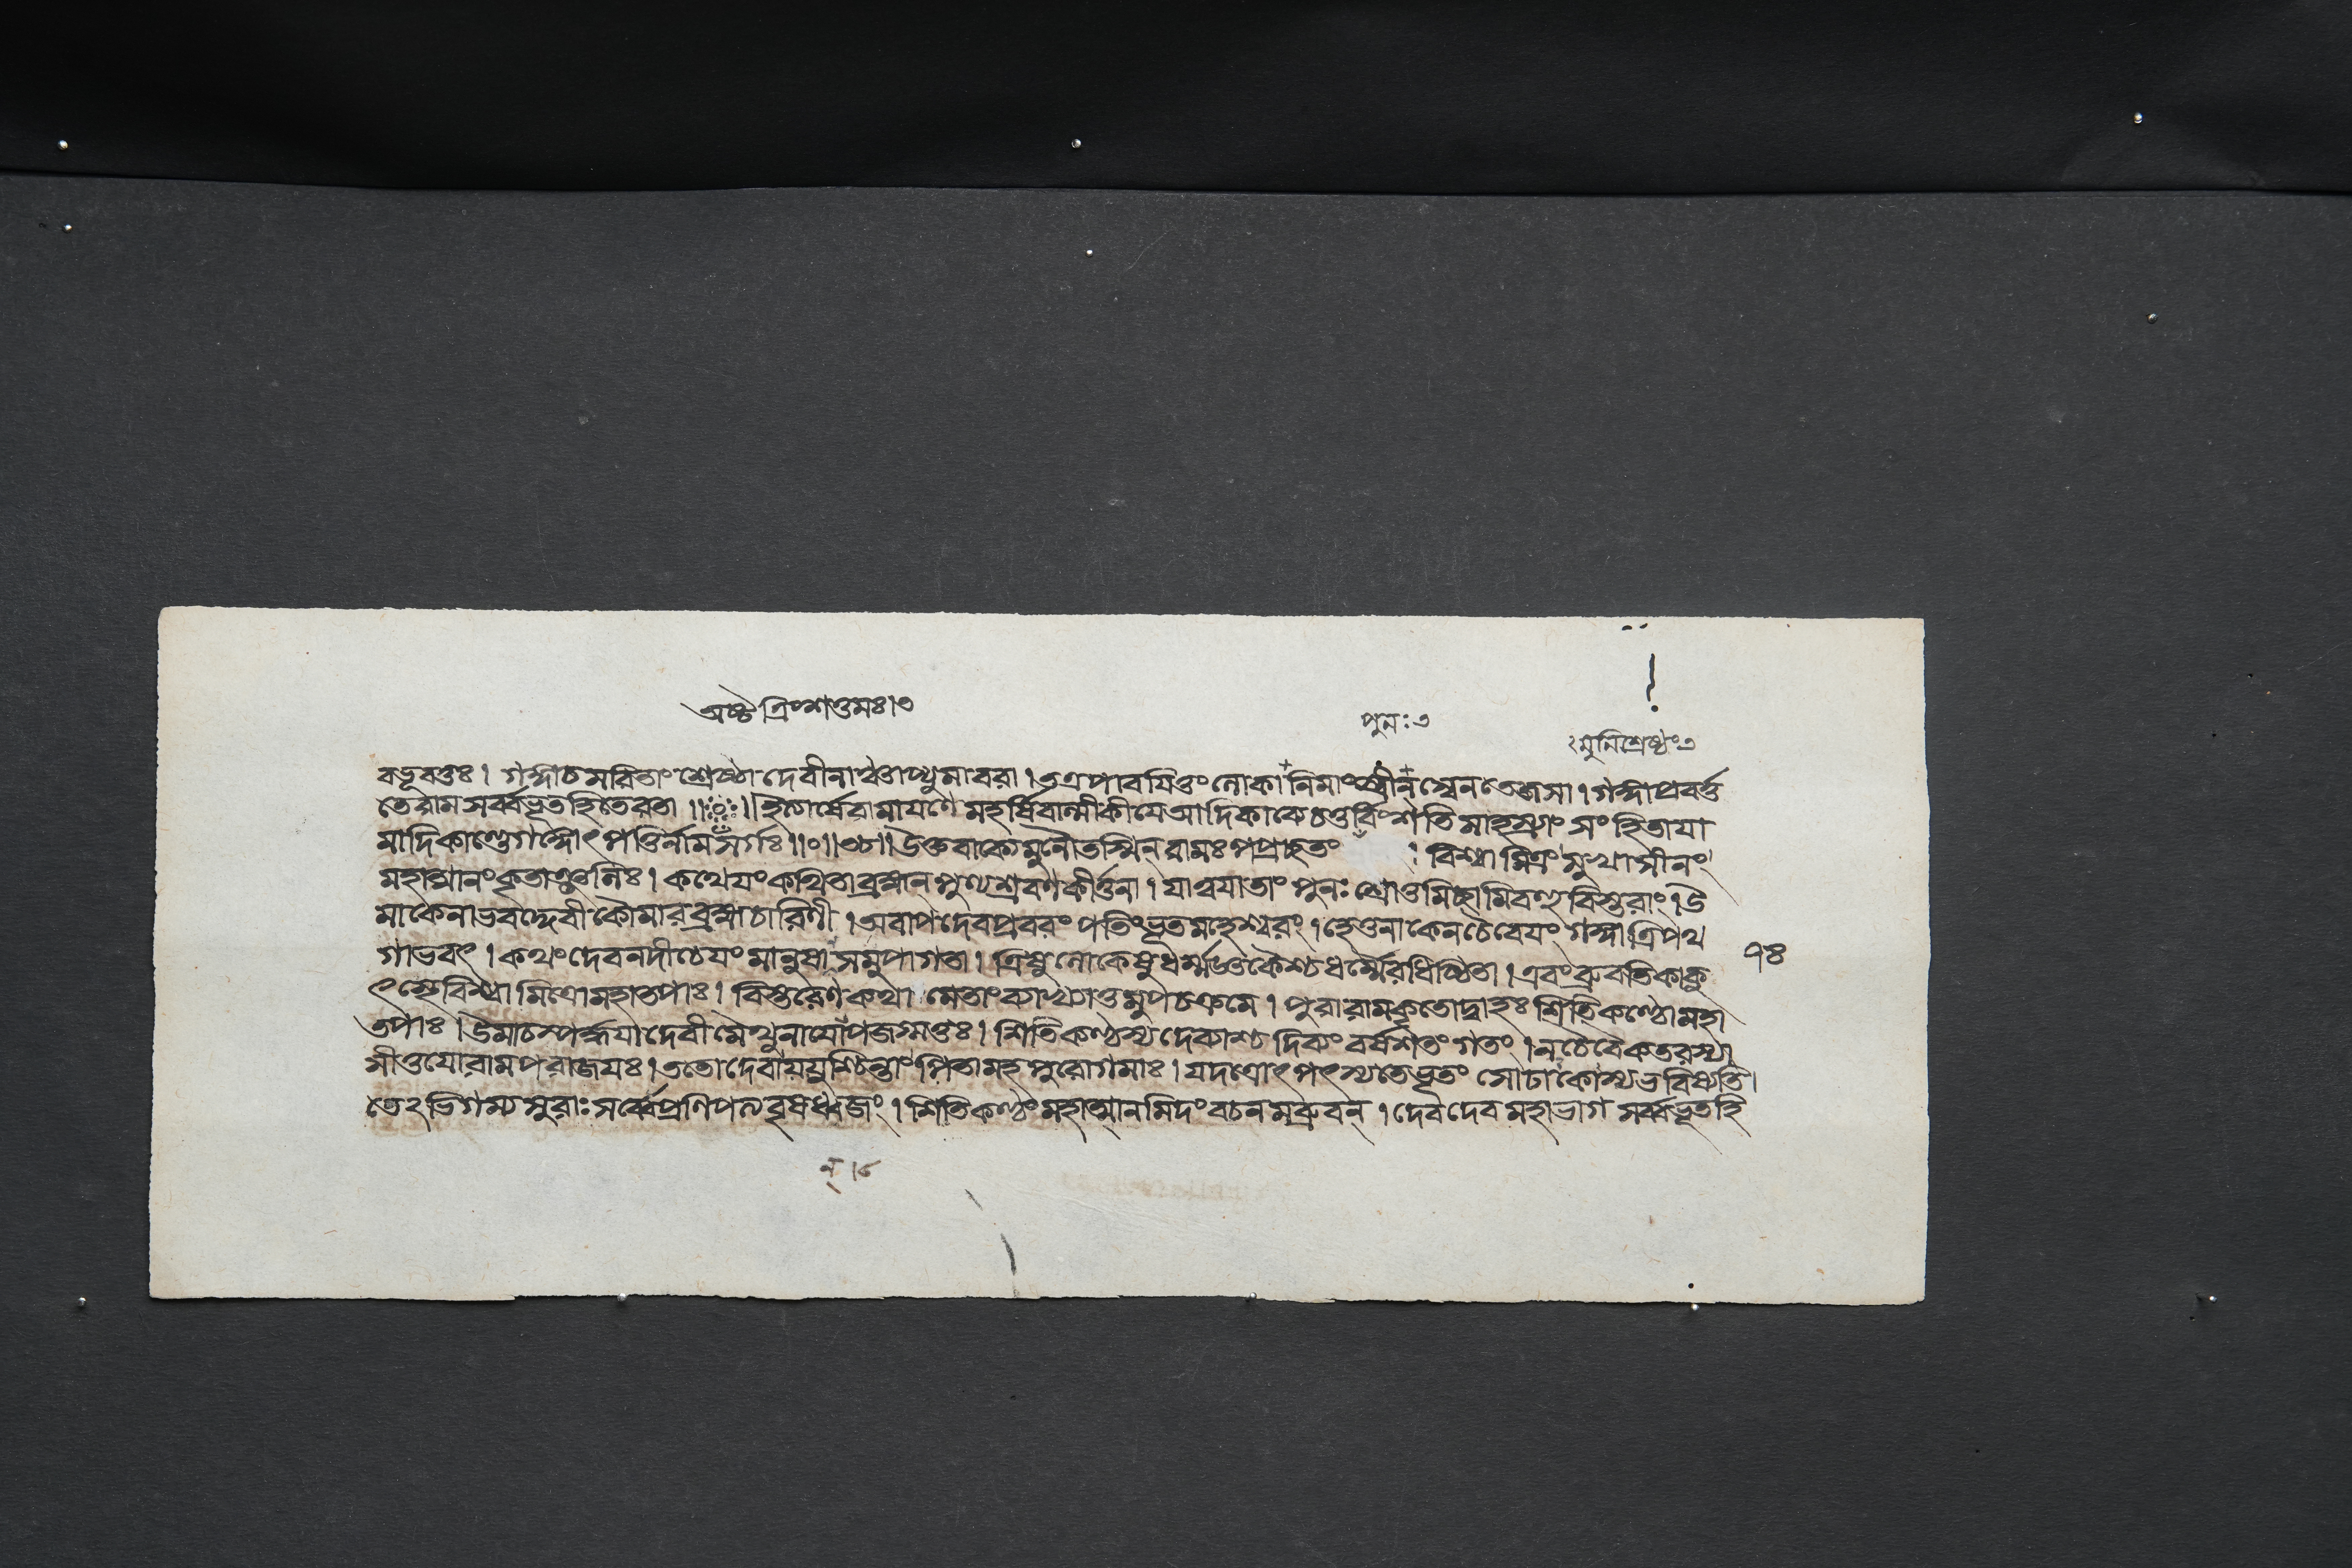 অষ্টত্রিংশত্তমঃ।৩
পুনঃ৩
মুনিশ্রেষ্ঠং৩
বভূবতুঃ। গঙ্গাচসরিতাং শ্রেষ্ঠা দেবীনাঞ্চাপ্যুমাবরা। পাবযিতুং লোকানিমাং স্বেন তেজসা। গঙ্গাপ্রবর্ত্ত
তেরাম সর্ব্বভূতহিতেরতা ॥ ॥ ইত্যার্ষেরামাযণে মহর্ষিবাল্মীকীযে আদিকাব্যে চতুর্বিংশতি সাহস্র্যাং সংহিতাযা
মাদিকাণ্ডেগঙ্গোৎপত্তির্নাম সর্গঃ॥০॥ উক্তবাক্যেমুনৌতস্মিন্ রামঃ বিশ্বামিত্রং সুখাসীনং
মহাত্মানং কৃতাঞ্জলিঃ। কথেযং কথিতাব্রহ্মন্ পুণ্যশ্রবণকীর্ত্তনা। যাত্বযাতাং পুনঃ শ্রোতুমিচ্ছামি বহুবিস্তরাং। উ
মাকেনাভবদ্দেবী কৌমারব্রহ্মচারিণী। অবাপদেবপ্রবরং পতিং ভূতমহেশ্বরং। হেতুনাকেনচৈবেযং গঙ্গাত্রিপথ
গাভবৎ। কথং দেবনদীচেযং মানুষা সমুপাগতা। ত্রিষুলোকেষুধর্ম্মজ্ঞকৈশ্চধর্ম্মৈরধিষ্ঠিতা। এবং ব্রুবতিকাকু
ৎস্থেবিশ্বামিত্রোমহাতপাঃ। বিস্তরেণকথামেতাং ব্যাখ্যাতুমুপচক্রমে। পুরারামকৃতোদ্বাহঃ শিতিকণ্ঠোমহা
তপাঃ। উমাচস্পর্দ্ধযাদেবী মৈথুনাযোপজগ্মতুঃ। শিতিকণ্ঠস্য দিব্যং বর্ষশতং গতং। নচৈবৈকতরস্যা
সীত্তযোরামপরাজযঃ। ততোদেবাযযুশ্চিন্তাং পিতামহপুরোগমাঃ। যদত্রোৎপৎস্যতেভূতং সোঢাকোস্যভবিষ্যতি।
তেঽভিগম্যসুরাঃ সর্ব্বেপ্রণিপত্যবৃষধ্বজং। শিতিকণ্ঠং মহাত্মানমিদং বচনমব্রুবন্। দেবদেবমহাভাগ সর্ব্বভূতহি
৭৪
ন্।৮